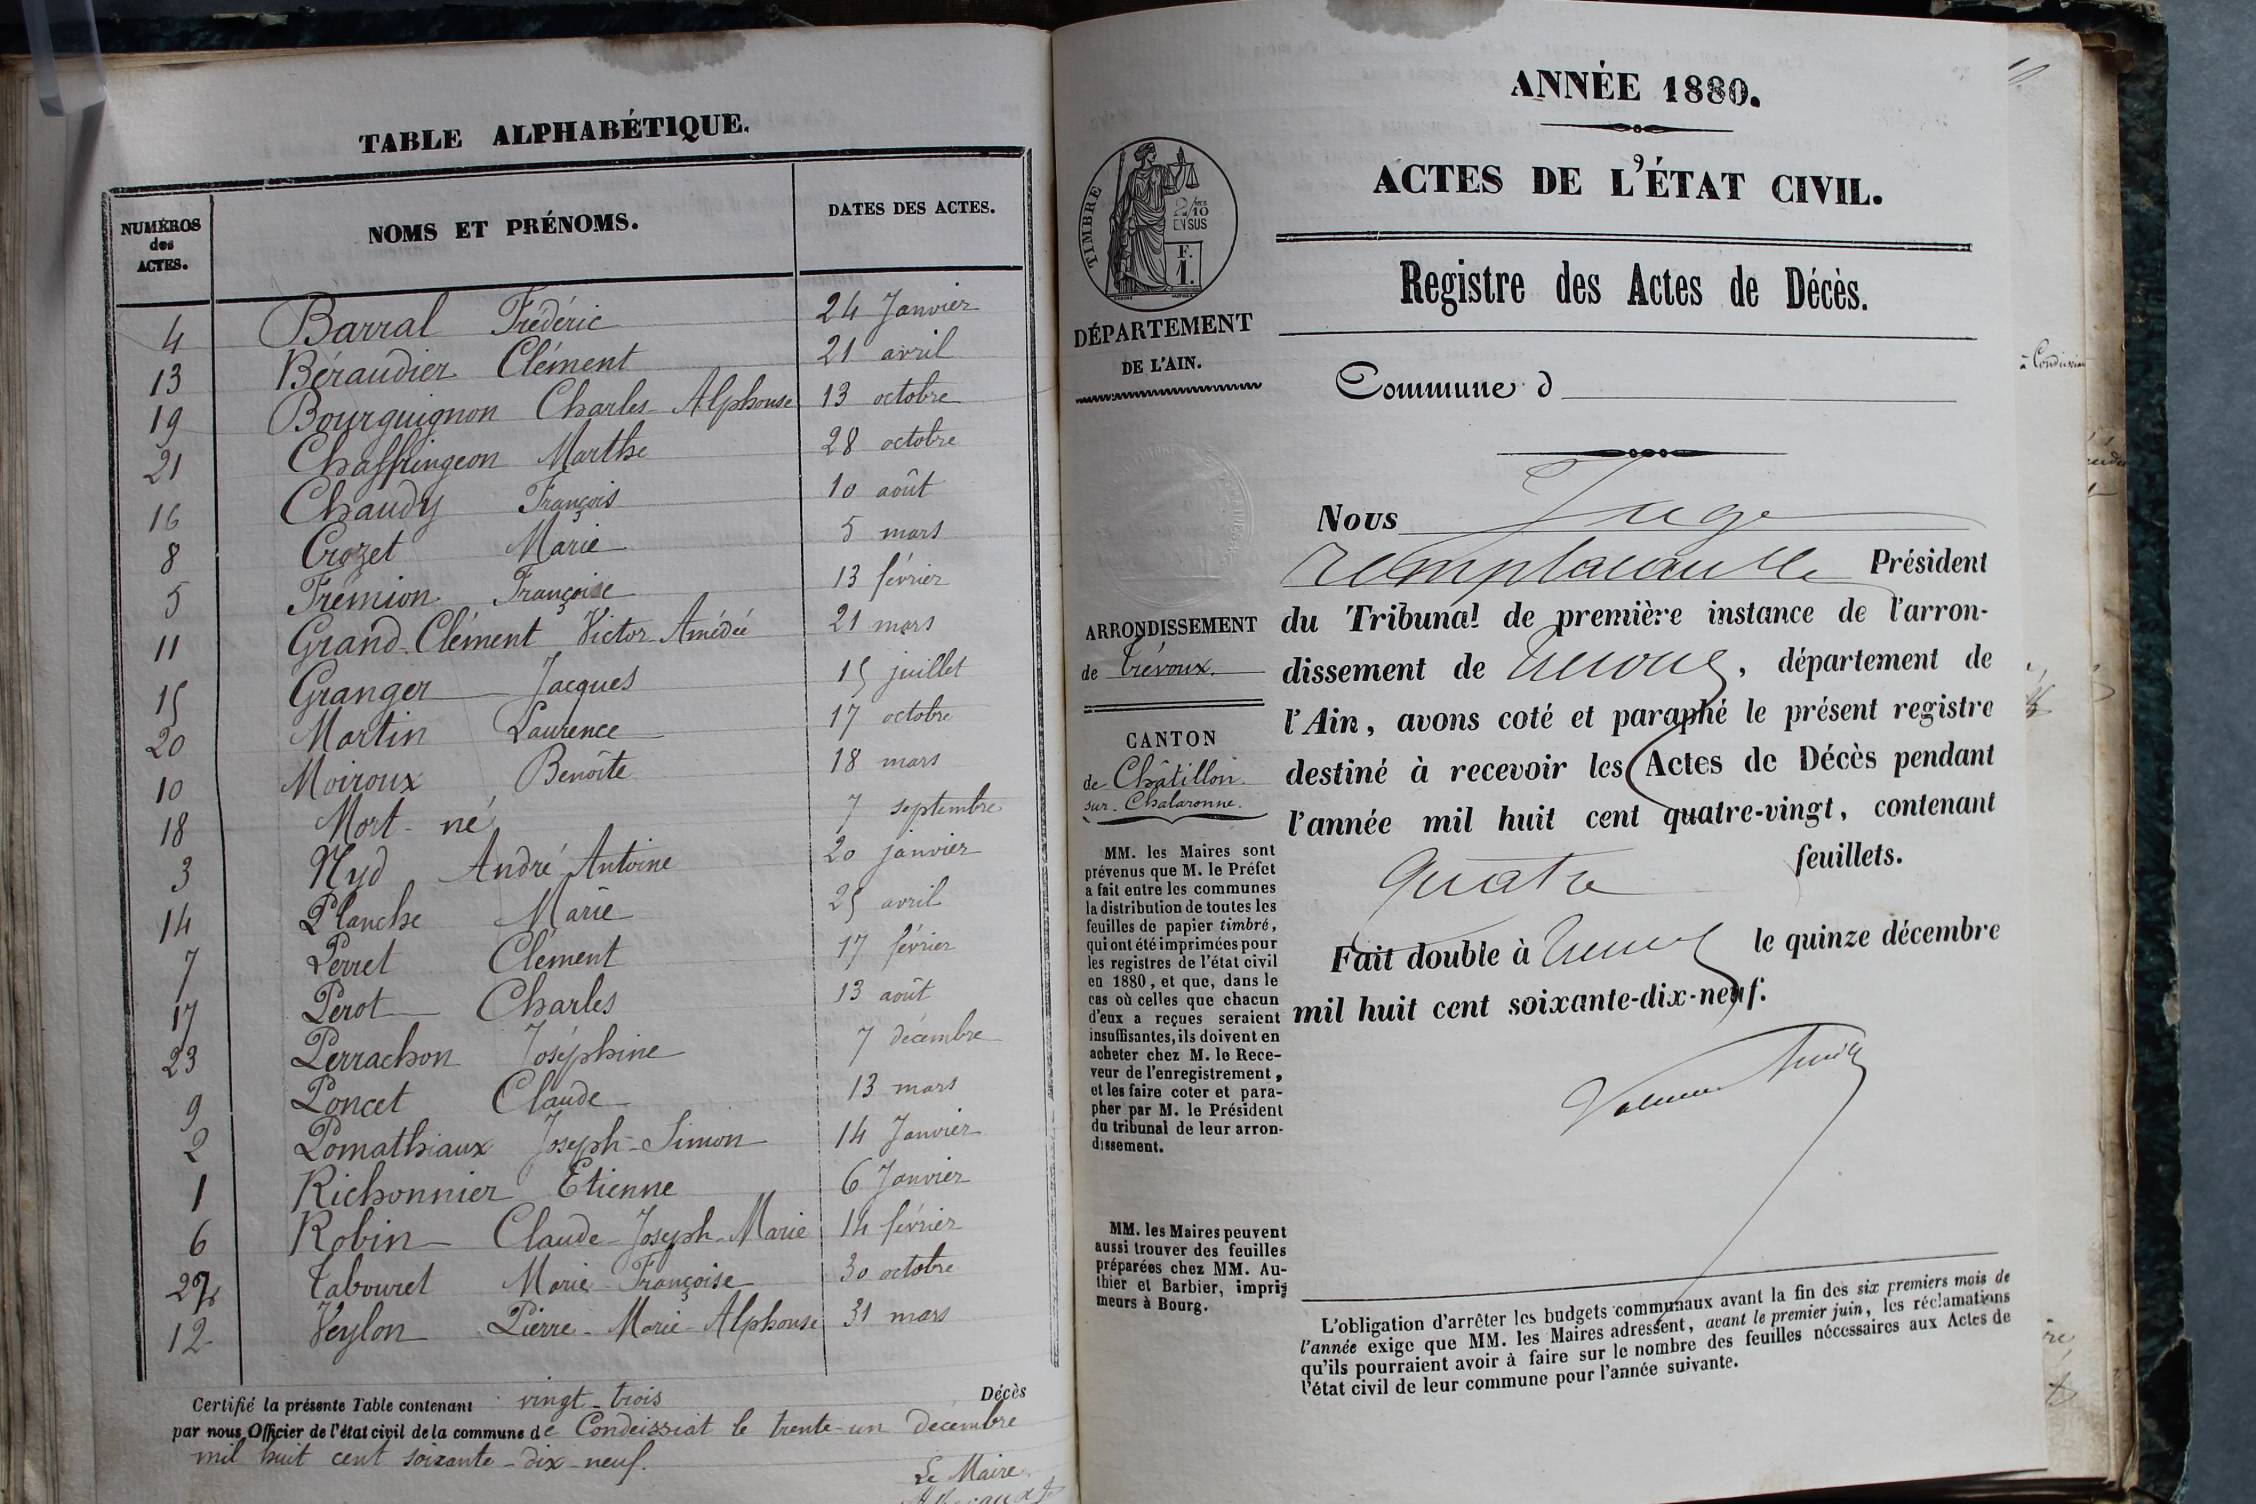 TABLE ALPHABÉTIQUE.
NUMÉROS des ACTES. NOMS ET PRÉNOMS. DATES DES ACTES.
4 Barral Frédéric 24 Janvier
13 Béraudier Clément 21 avril
19 Bourguignon Charles-Alphonse 13 octobre
21 Chaffringeon Marthe 28 octobre
16 Chaudy François 10 août
8 Crozet Marie 5 mars
5 Frémion Françoise 13 février
11 Grand-Clément Victor-Amédée 21 mars
15 Granger Jacques 15 juillet
20 Martin Laurence 17 octobre
10 Moiroux Benoîte 18 mars
18 Mort-né 7 septembre
3 Nyd André Antoine 20 janvier
14 Planche Marie 25 avril
7 Perret Clément 17 février
17 Perot Charles 13 août
23 Perrachon Joséphine 7 décembre
9 Poncet Claude 13 mars
2 Pomathiaux Joseph-Simon 14 Janvier
1 Richonnier Etienne 6 Janvier
6 Robin Claude-Joseph-Marie 14 février
Tabouret Marie Françoise 30 octobre
12 Veylon Pierre-Marie-Alphonse 31 mars
Certifié la présente Table contenant vingt-trois Décès
par nous Officier de l'état civil de la commune de Condeissiat le trente-un décembre
mil huit cent soixante-dix-neuf.
Le Maire
ANNÉE 1880.
ACTES DE L'ÉTAT CIVIL.
TIMBRE
2/10
EN SUS
F.
1.
DÉPARTEMENT
DE L'AIN.
ARRONDISSEMENT
de Trévoux.
CANTON
de Châtillon
sur-Chalaronne.
MM. les Maires sont
prévenus que M. le Préfet
a fait entre les communes
la distribution de toutes les
feuilles de papier timbré,
qui ont été imprimées pour
les registres de l'état civil
en 1880, et que, dans le
cas où celles que chacun
d'eux a reçues seraient
insuffisantes, ils doivent en
acheter chez M. le Rece-
veur de l'enregistrement,
et les faire coter et para-
pher par M. le Président
du tribunal de leur arron-
dissement.
MM. les Maires peuvent
aussi trouver des feuilles
préparées chez MM. Au-
thier et Barbier, impri-
meurs à Bourg.
Registre des Actes de Décès.
Commune d
Nous Juge
remplaçant le Président
du Tribunal de première instance de l'arron-
dissement de Trevoux, département de
l'Ain, avons coté et paraphé le présent registre
destiné à recevoir les Actes de Décès pendant
l'année mil huit cent quatre-vingt, contenant
quatre feuillets.
Fait double à Trevoux le quinze décembre
mil huit cent soixante-dix-neuf.
L'obligation d'arrêter les budgets communaux avant la fin des six premiers mois de
l'année exige que MM. les Maires adressent, avant le premier juin, les réclamations
qu'ils pourraient avoir à faire sur le nombre des feuilles nécessaires aux Actes de
l'état civil de leur commune pour l'année suivante.